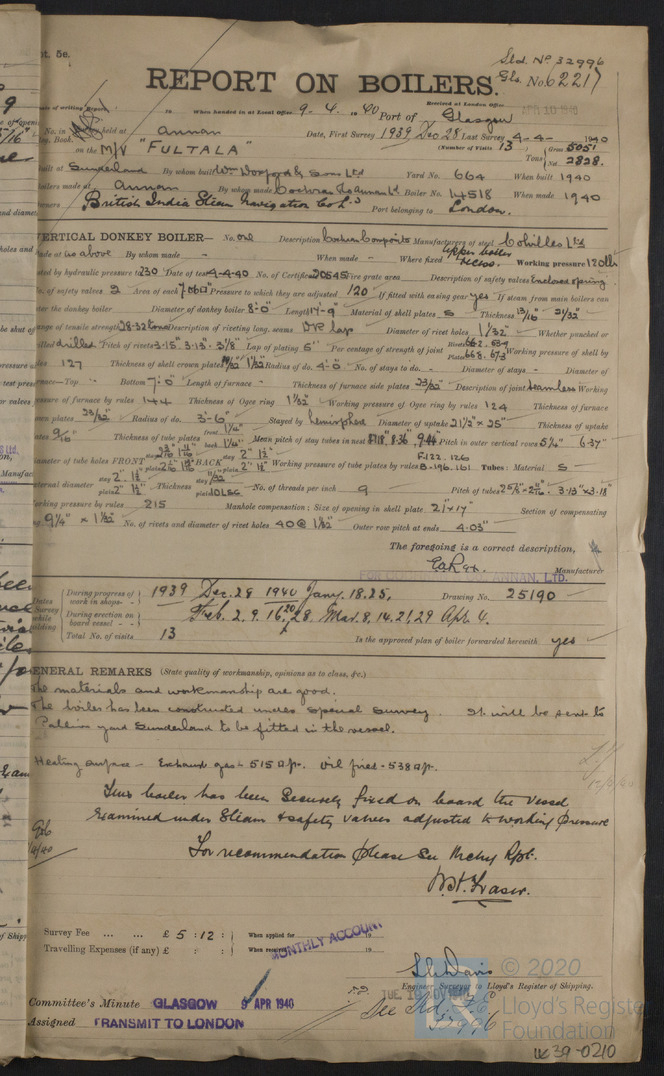 Std. No 32996
Gls. No. 62217
REPORT ON BOILERS.
Received at London Office APR 10 1940
When handed in at Local Office 9-4-1940 Port of Glasgow
No. in held at Annan Date, First Survey 1939 Dec 28 Last Survey 4-4-1940
on the M/V "FULTALA" (Number of Visits 13) Tons Gross 5051 Net 2828
Built at Sunderland By whom built Wm Doxford & Sons Ltd Yard No. 664 When built 1940
Boilers made at Annan By whom made Cochran & Co Annan Ld Boiler No. 14518 When made 1940
Owners British India Steam Navigation Co Ld Port belonging to London.
VERTICAL DONKEY BOILER— No. one Description Cochran Composite Manufacturers of steel Colvilles Ltd
Made at as above By whom made - When made - Where fixed upper boiler recess. Working pressure 120 lbs
tested by hydraulic pressure to 230 Date of test 4-4-40 No. of Certificate 20545 Fire grate area - Description of safety valves Enclosed spring
No. of safety valves 2 Area of each 7.06 Pressure to which they are adjusted 120 If fitted with easing gear yes If steam from main boilers can
enter the donkey boiler - Diameter of donkey boiler 8'-0" Length 17'-9" Material of shell plates S Thickness 21/32"
Range of tensile strength 28-32 tons Description of riveting long. seams DR lap Diameter of rivet holes 1 1/32" Whether punched or
drilled drilled Pitch of rivets 3.15" 3.13" 3 1/8" Lap of plating 5" Per centage of strength of joint Rivets 66.2 Plates 66.8 67.3 Working pressure of shell by
rules 127 Thickness of shell crown plates Radius of do. 4'-0" No. of stays to do. - Diameter of stays - Diameter of
furnace—Top - Bottom 7'-0" Length of furnace - Thickness of furnace side plates 23/32" Description of joint Seamless Working
pressure of furnace by rules 144 Thickness of Ogee ring 1 1/32" Working pressure of Ogee ring by rules 124 Thickness of furnace
crown plates 23/32" Radius of do. 3'-6" Stayed by hemisphere Diameter of uptake 21 1/2" x 25" Thickness of uptake
plates 9/16" Thickness of tube plates front 1 1/4" back 1 1/4" Mean pitch of stay tubes in nest 8.36 9.44 Pitch in outer vertical rows 5 1/4" 6.37"
Diameter of tube holes FRONT stay plain BACK stay 2" 1 1/2" plain 2" 1 1/2" Working pressure of tube plates by rules F-122. 126 B-196. 161 Tubes: Material S
External diameter stay 2" 1 1/2" plain 2" 1 1/2" Thickness stay plain 10 LSG No. of threads per inch 9 Pitch of tubes 3.13" x 3.18"
Working pressure by rules 215 Manhole compensation: Size of opening in shell plate 21" x 17" Section of compensating
ring 9 1/4" x 1 1/32" No. of rivets and diameter of rivet holes 40 @ 1 1/32" Outer row pitch at ends 4.03"
The foregoing is a correct description,
ANNAN, LTD. Manufacturer
Dates of Survey while building
During progress of work in shops - - 1939 Dec. 28 1940 Jany. 18. 25. Drawing No. 25190
During erection on board vessel - - Feb. 2. 9. 16. 20 28 Mar. 8. 14. 21. 29 Apr. 4.
Total No. of visits 13 Is the approved plan of boiler forwarded herewith yes
GENERAL REMARKS (State quality of workmanship, opinions as to class, &c.)
The materials and workmanship are good.
The boiler has been constructed under special survey. It will be sent to
Pallion yard Sunderland to be fitted in the vessel.
Heating surface - Exhaust gas - 515 ft. Oil fired - 538 ft.
This boiler has been securely fixed on board the vessel
Examined under Steam & safety valves adjusted to working pressure
For recommendation please see Mchy Rpt.
W.H. Fraser.
Survey Fee ... ... £ 5 : 12 : When applied for 19
Travelling Expenses (if any) £ : : When received 19
MONTHLY ACCOUNT
Davis
Engineer Surveyor to Lloyd's Register of Shipping.
Committee's Minute GLASGOW 9 APR 1940
Assigned TRANSMIT TO LONDON
See Std. 32996
© 2020
Lloyd's Register
Foundation
W39-0210